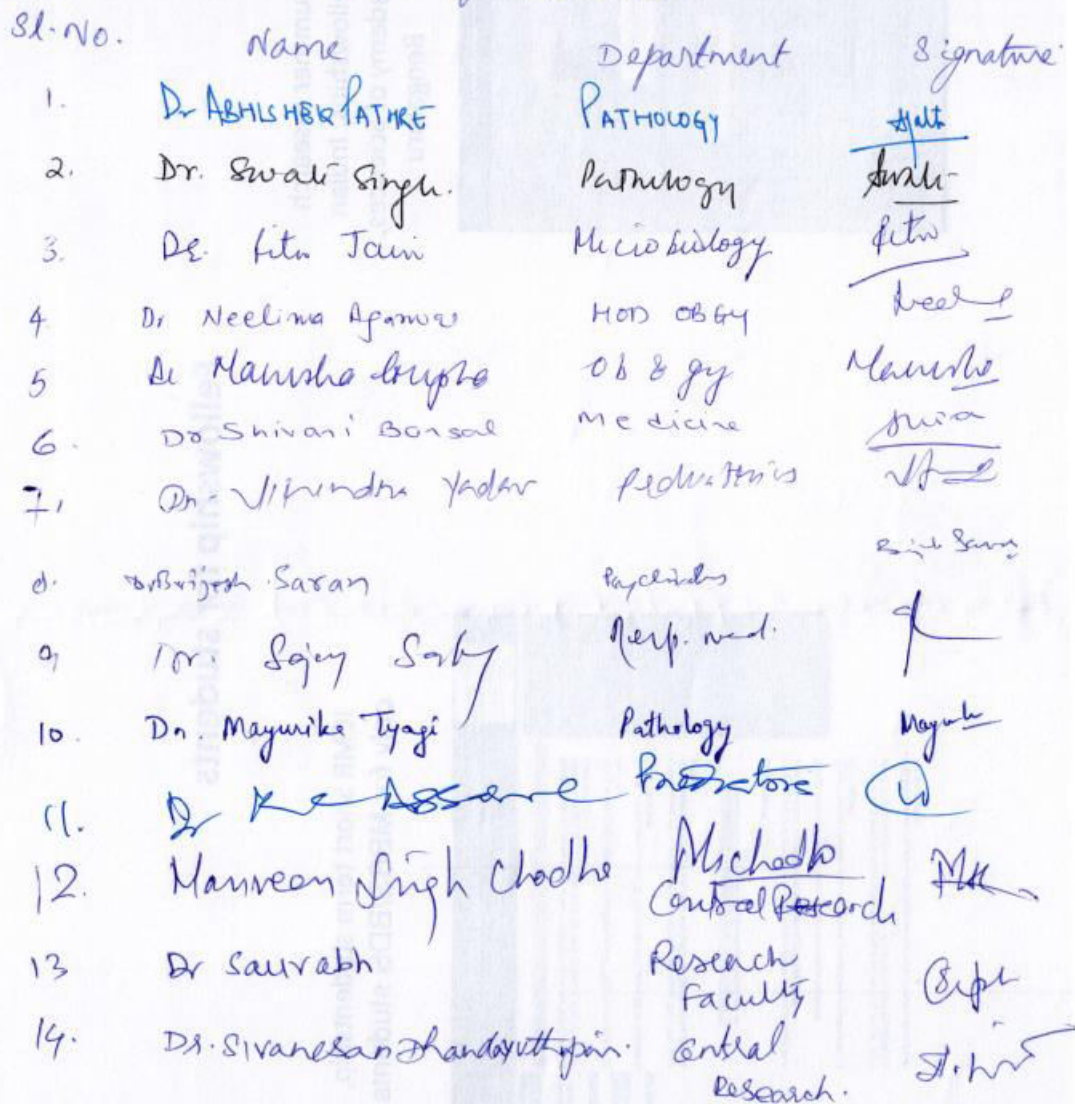 Sl. No. Name Department Signature
1. Dr ABHISHEK PATHRE PATHOLOGY
2. Dr. Swati Singh. Pathology Swati
3. Dr. Ritu Jain Microbiology Ritu
4 Dr Neelima Agarwal HOD OBGY Neel
5 Dr Manisha Gupta Ob & gy Manisha
6. Dr Shivani Bansal Medicine
7. Dr. Vipindra Yadav Pediatrics
8. Dr Brijesh Saran Brijesh Saran
9, Dr. Resp. med.
10. Dr. Mayurika Tyagi Pathology
11. Dr
12. Manveen Singh Chadha Mschadha
Central Research
13 Dr Saurabh Research
Faculty
14. Dr. Sivanesan Dhandayuthapani. Central
Research.